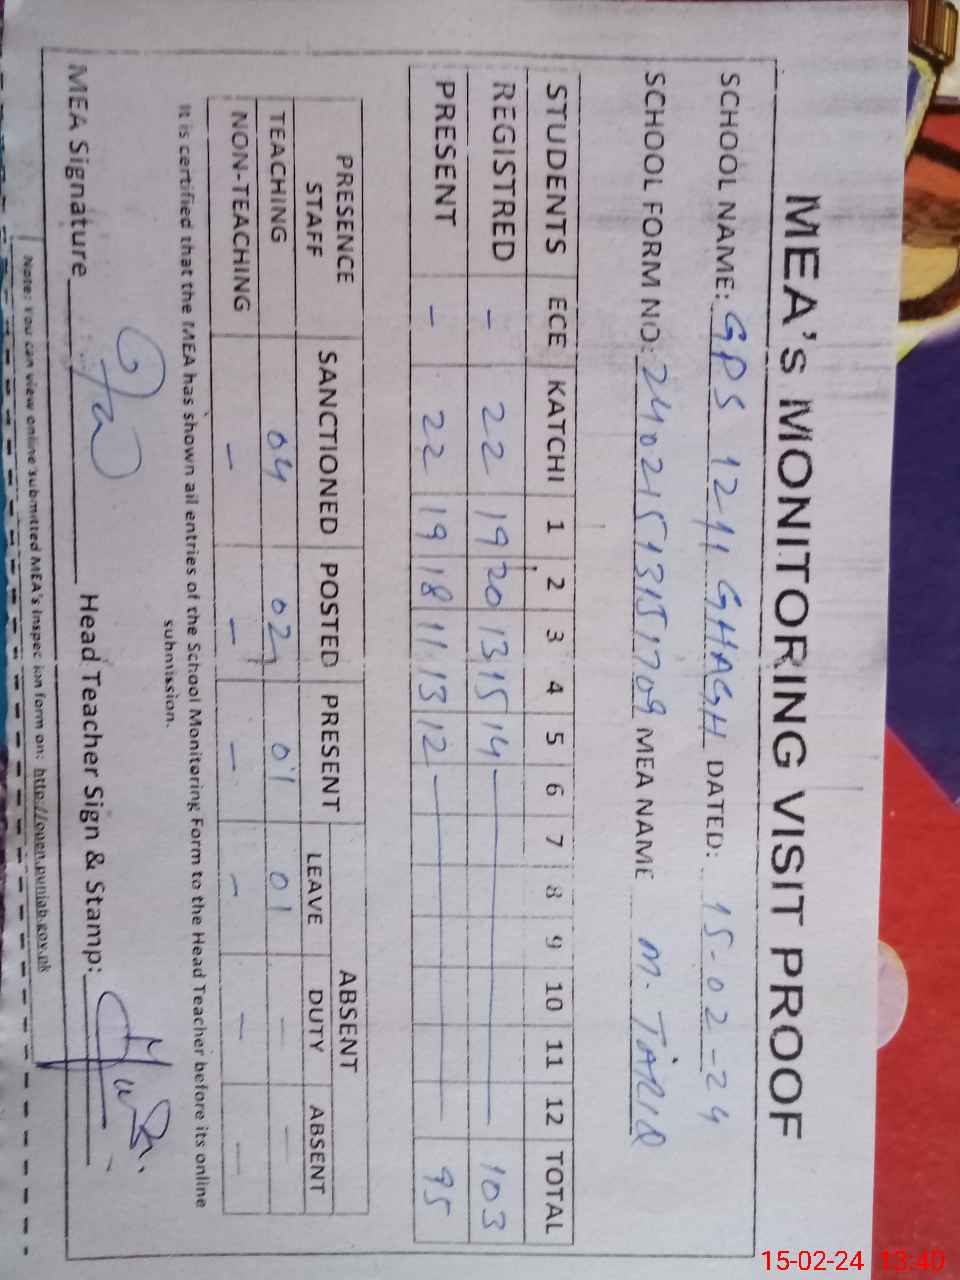 MEA'S MONITORING VISIT PROOF
SCHOOL NAME: GPS 1211 GHAGH DATED: 15-02-24
SCHOOL FORM NO: 24021513151709 MEA NAME M. TARIQ
STUDENTS ECE KATCHI 1 2 3 4 5 6 7 8 9 10 11 12 TOTAL
REGISTRED - 22 19 20 13 15 14 - 103
PRESENT - 22 19 18 11 13 12 - 95
PRESENCE STAFF SANCTIONED POSTED PRESENT ABSENT
LEAVE DUTY ABSENT
TEACHING 04 02 01 01 - -
NON-TEACHING - - - - - -
It is certified that the MEA has shown all entries of the School Monitoring Form to the Head Teacher before its online
submission.
MEA Signature Head Teacher Sign & Stamp:
Note: You can view online submitted MEA's Inspec ion form on: http://open.punjab.gov.pk
15-02-24 13:40